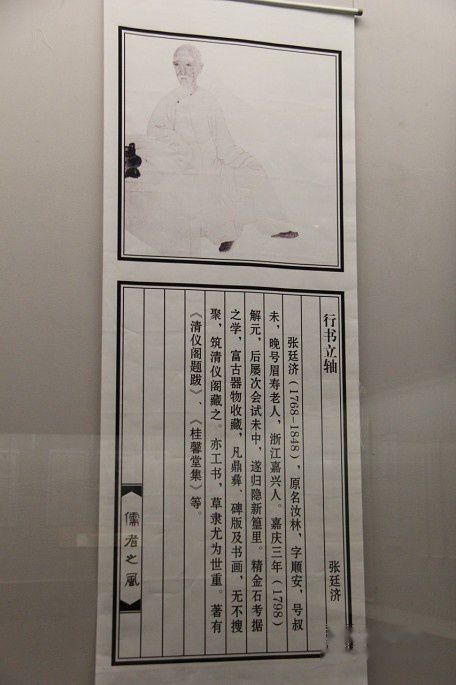 行书立轴
张廷济
张廷济（1768-1848），原名汝林，字顺安，号叔
未，晚号眉寿老人，浙江嘉兴人。嘉庆三年（1798）
解元，后屡次会试未中，遂归隐新篁里。精金石考据
之学，富古器物收藏，凡鼎彝、碑版及书画，无不搜
聚，筑清仪阁藏之。亦工书，草隶尤为世重。著有
《清仪阁题跋》、《桂馨堂集》等。
儒者之风